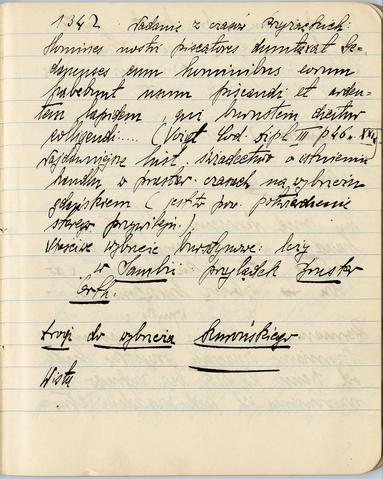 1342 Nadanie z czasów Krzyżackich:
Homines nostri piscatores dumtaxat Ge-
danenses cum hominibus eorum
habebunt usum piscandi et arden-
tem lapidem, qui burnstein dicitur
colligendi .... (Voigt Cod. dipl III p 46.
Najdawniejsze hist. świadectwo o istnieniu
handlu w prastar. czasach na wybrzeżu
gdańskiem (jest to pow. potwierdzenie
starego przywileju.)
Właściwe wybrzeże bursztynowe: leży
w Sambii przylądek Bruster
Orth.
Drogi do wybrzeża
Wisła